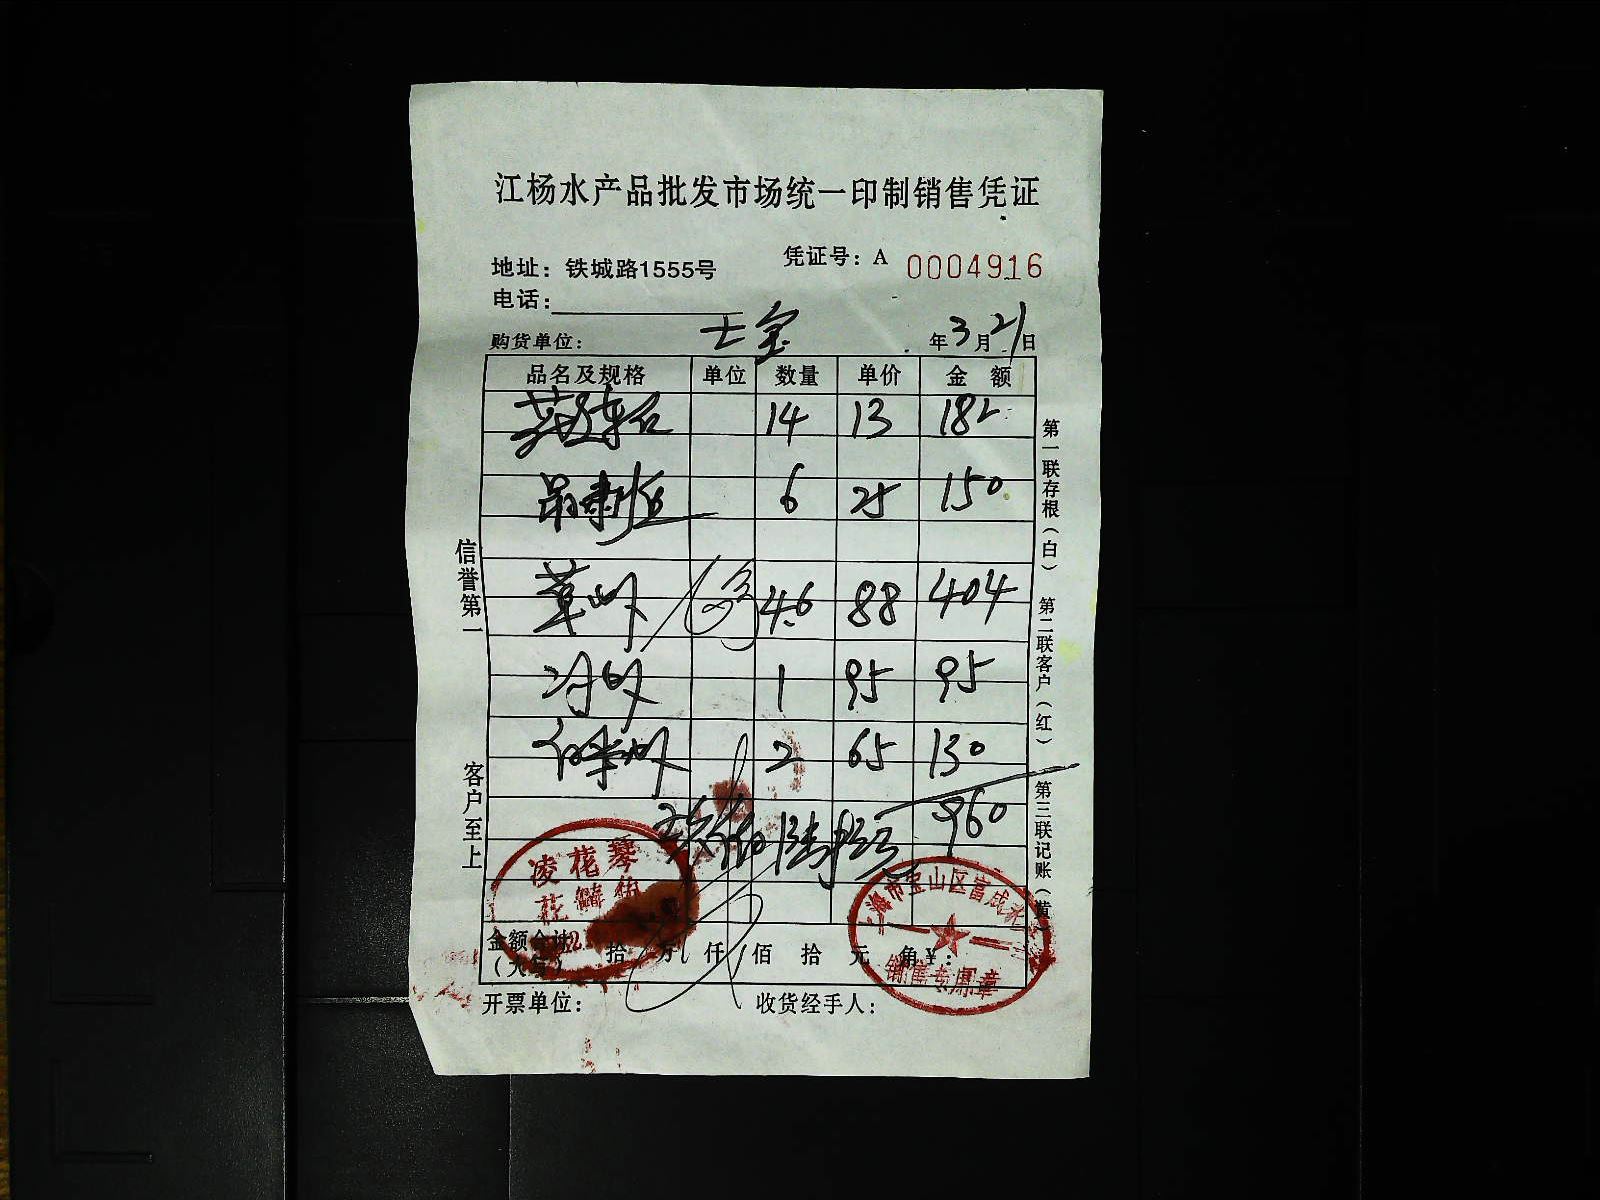 江杨水产品批发市场统一印制销售凭证
地址：铁城路1555号 凭证号：A 0004916
电话：
购货单位： 七宝 年3月21日
品名及规格 单位 数量 单价 金 额
14 13 182
6 25 150
草虾 4.6 88 404
1 95 95
2 65 130
960
玖佰陆拾元
金额合计 拾 万 仟 佰 拾 元 角 ¥：
（大写）
开票单位： 收货经手人：
信誉第一 客户至上
第一联存根（白） 第二联客户（红） 第三联记账（黄
凌花琴
上海市宝山区富成水
销售专用章